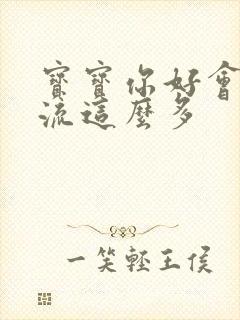 寶寶你好會
流這麼多
一笑輕王侯